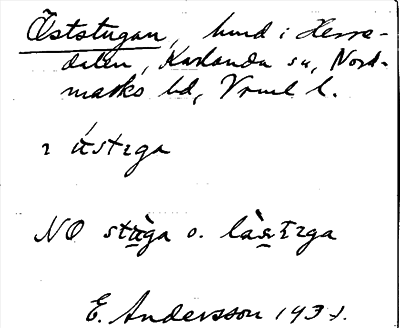 Öststugan, hund i Herre-
dalen, Karlanda sn, Nord-
marks hd, Vrml l.
ı ústıga
NO stùga o. là
E. Andersson 193